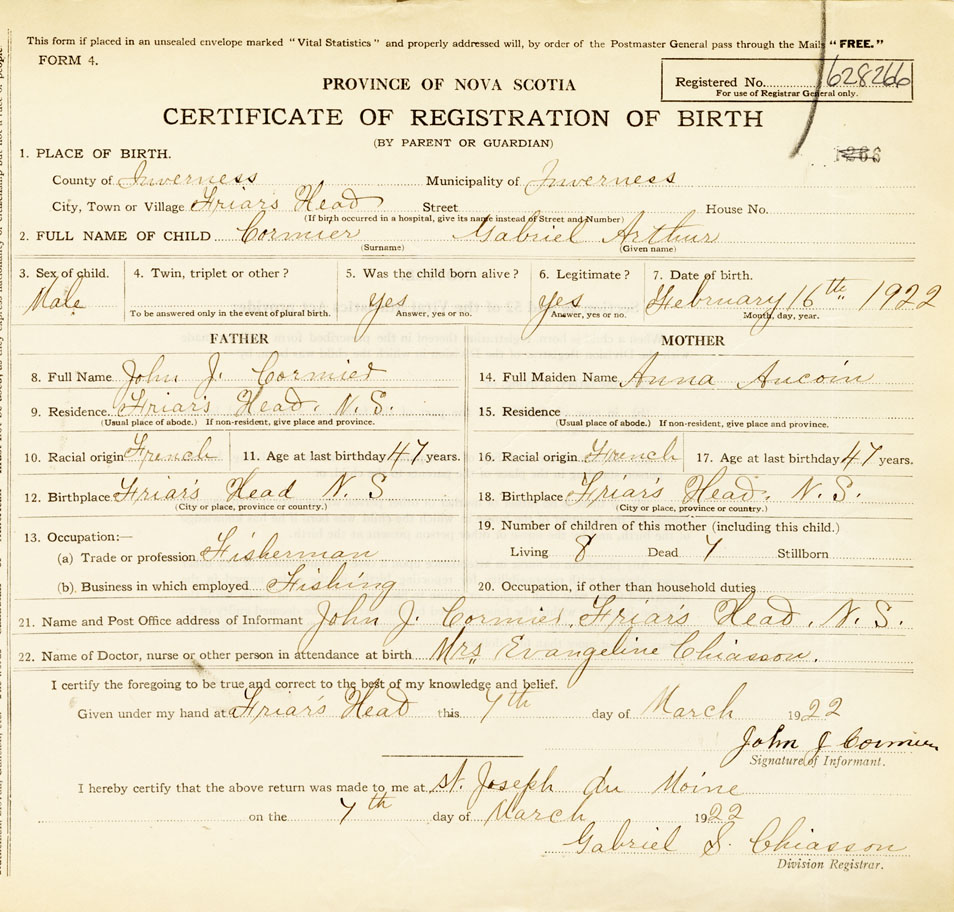 This form if placed in an unsealed envelope marked "Vital Statistics" and properly addressed will, by order of the Postmaster General pass through the Mails "FREE."
FORM 4.
PROVINCE OF NOVA SCOTIA
Registered No. 628266
For use of Registrar General only.
CERTIFICATE OF REGISTRATION OF BIRTH
(BY PARENT OR GUARDIAN)
1. PLACE OF BIRTH.
County of Inverness Municipality of Inverness
City, Town or Village Friars Head Street House No.
(If birth occurred in a hospital, give its name instead of Street and Number)
2. FULL NAME OF CHILD Cormier Gabriel Arthur
(Surname) (Given name)
3. Sex of child. 4. Twin, triplet or other? 5. Was the child born alive? 6. Legitimate? 7. Date of birth.
Male Yes Yes February 16th 1922
To be answered only in the event of plural birth. Answer, yes or no. Answer, yes or no. Month, day, year.
FATHER MOTHER
8. Full Name John J. Cormier 14. Full Maiden Name Anna Aucoin
9. Residence. Friar's Head. N. S. 15. Residence
(Usual place of abode.) If non-resident, give place and province. (Usual place of abode.) If non-resident, give place and province.
10. Racial origin French 11. Age at last birthday 47 years. 16. Racial origin French 17. Age at last birthday 47 years.
12. Birthplace Friar's Head N. S 18. Birthplace Friar's Head. N. S.
(City or place, province or country.) (City or place, province or country.)
13. Occupation:— 19. Number of children of this mother (including this child.)
(a) Trade or profession Fisherman Living 8 Dead 7 Stillborn
(b) Business in which employed Fishing 20. Occupation, if other than household duties
21. Name and Post Office address of Informant John J. Cormier, Friar's Head, N. S.
22. Name of Doctor, nurse or other person in attendance at birth Mrs Evangeline Chiasson.
I certify the foregoing to be true and correct to the best of my knowledge and belief.
Given under my hand at Friar's Head this 7th day of March 1922
John J Cormier
Signature of Informant.
I hereby certify that the above return was made to me at St. Joseph du Moine
on the 7th day of March 1922
Gabriel S. Chiasson
Division Registrar.